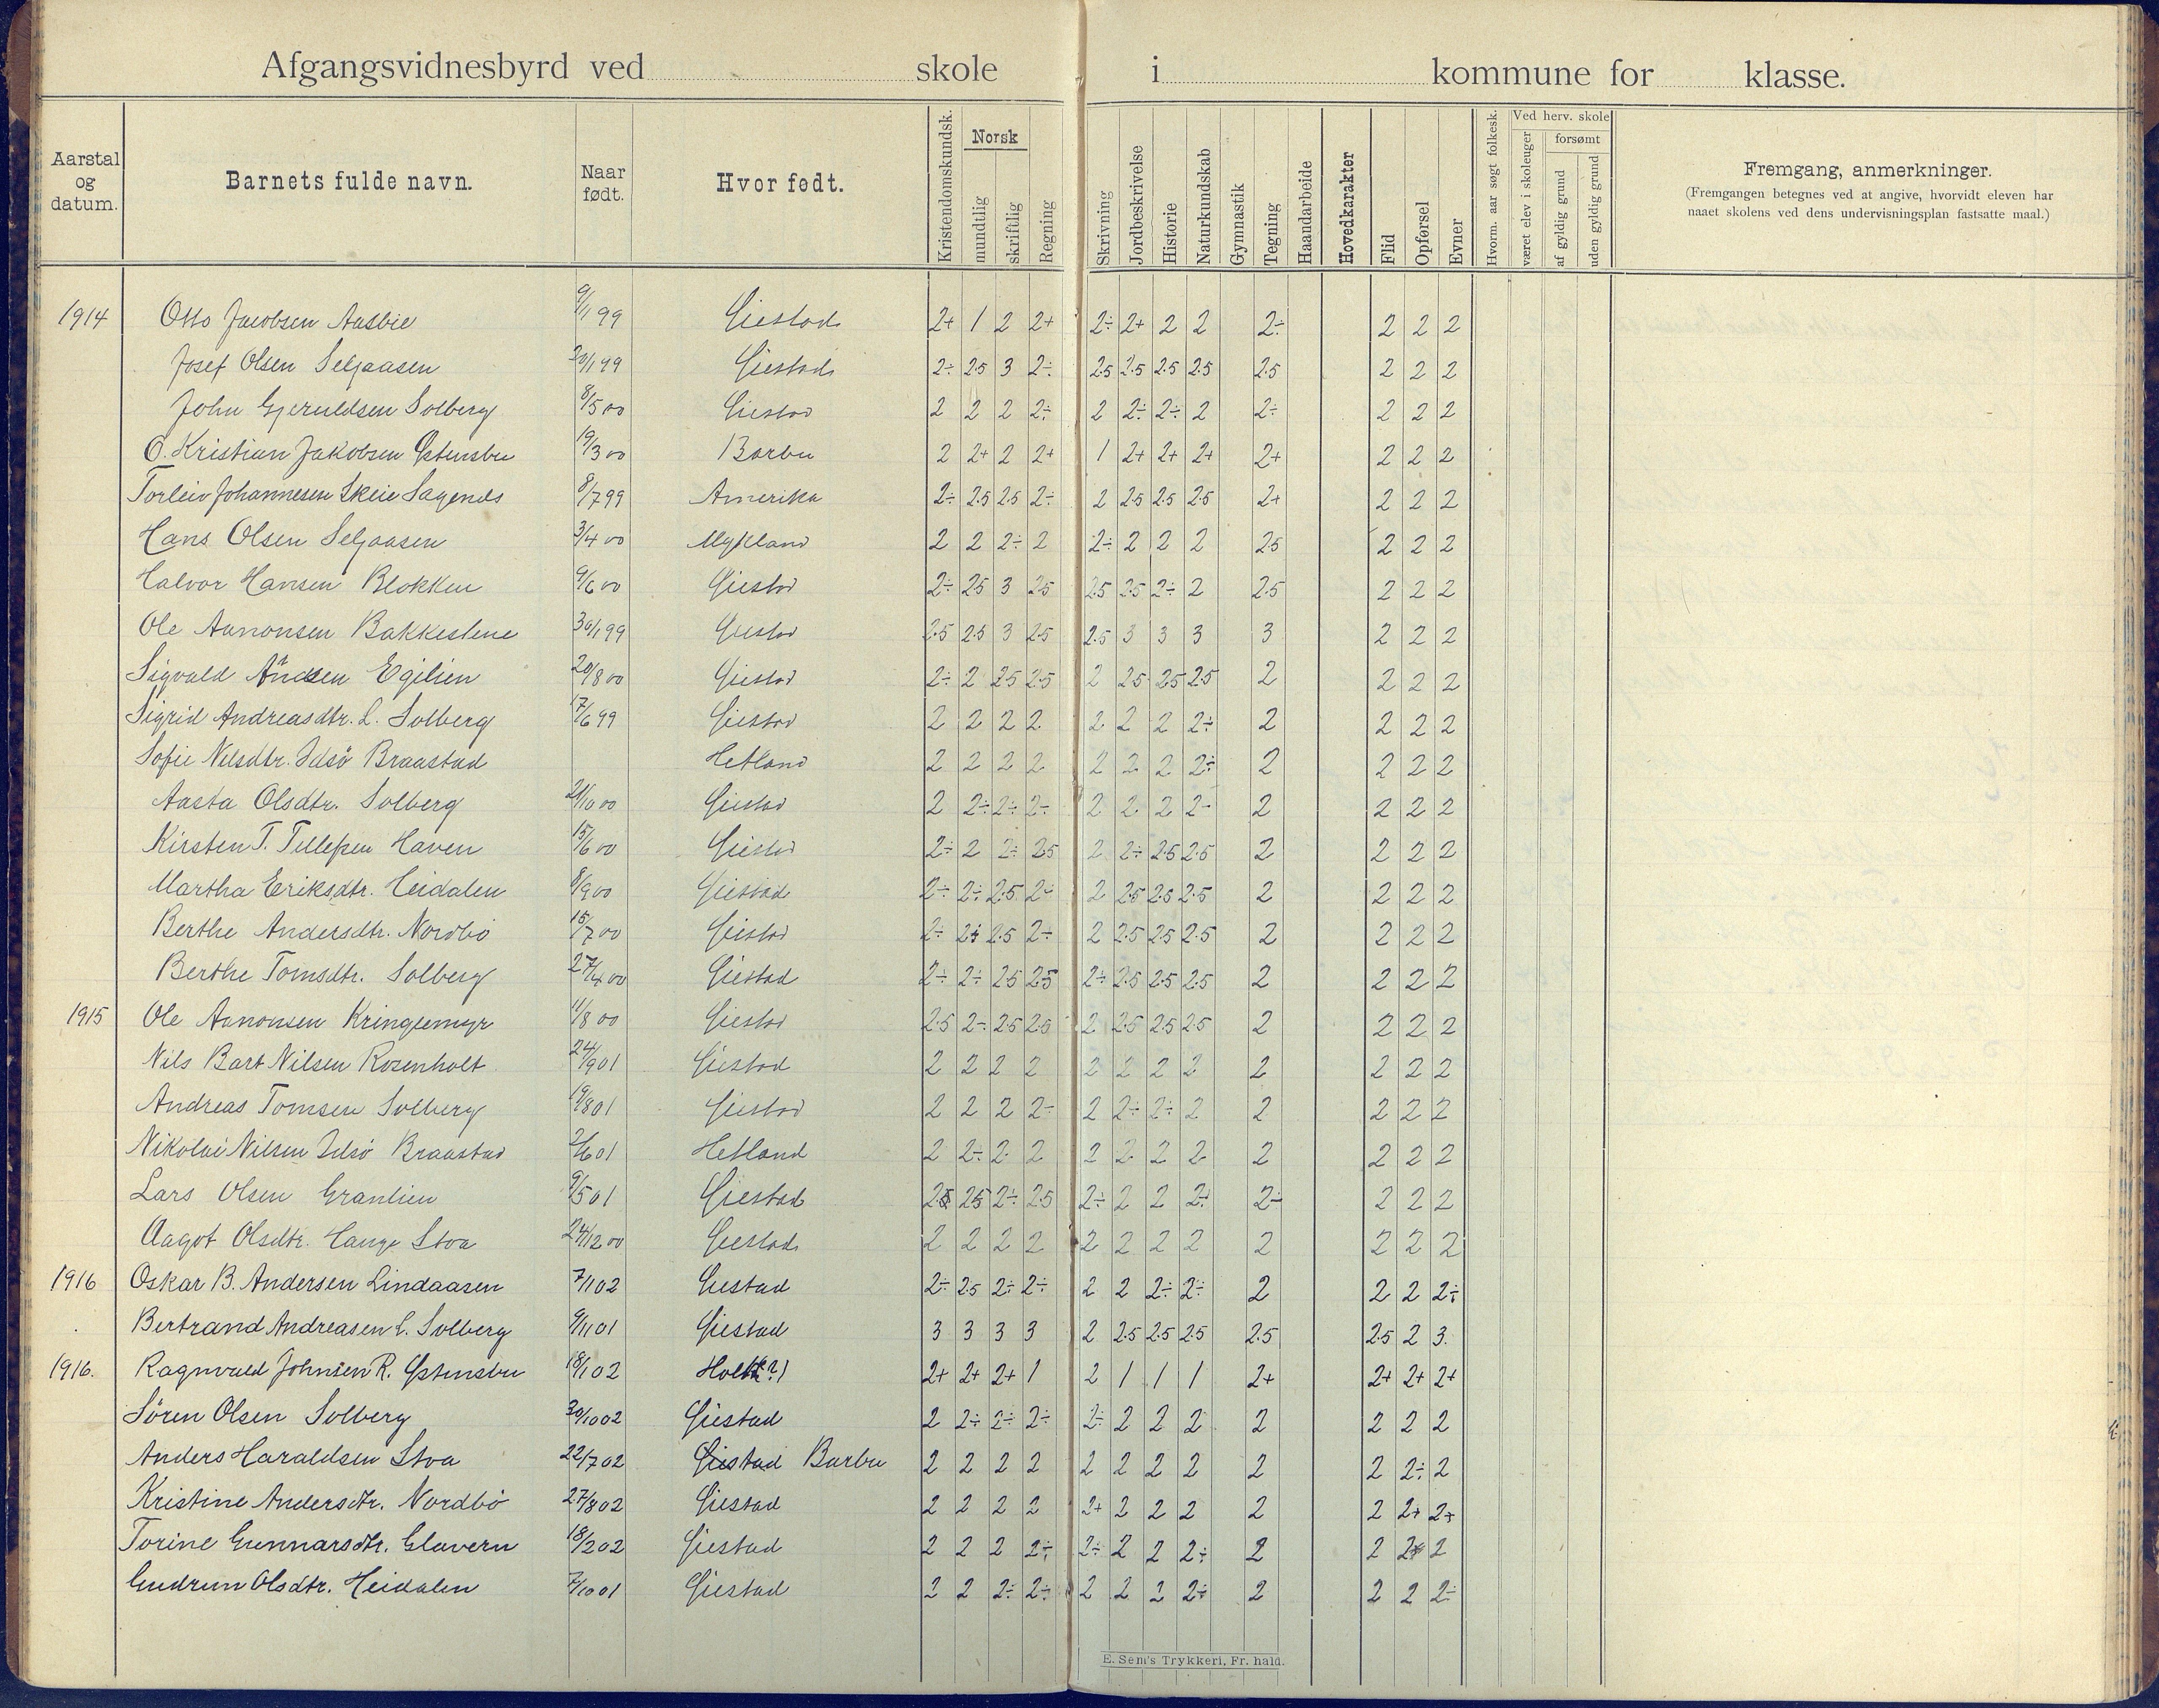 Afgangsvidnesbyrd ved skole i kommune for klasse.
Aarstal og datum. Barnets fulde navn. Naar født. Hvor født. Kristendomskundsk. Norsk mundtlig skriftlig Regning Skrivning Jordbeskrivelse Historie Naturkundskab Gymnastik Tegning Haandarbeide Hovedkarakter Flid Opførsel Evner Hvorm. aar søgt folkesk. Ved herv. skole været elev i skoleuger forsømt af gyldig grund uden gyldig grund Fremgang, anmerkninger.
(Fremgangen betegnes ved at angive, hvorvidt eleven har
naaet skolens ved dens undervisningsplan fastsatte maal.)
1914 Otto Jacobsen Aasbie 9/11 99 Giestad 2+ 1 2 2+ 2÷ 2+ 2 2 2÷ 2 2 2
Josef Olsen Seljaasen 30/1 99 Giestad 2÷ 2.5 3 2÷ 2.5 2.5 2.5 2.5 2.5 2 2 2
John Gjeruldsen Solberg 8/5 00 Giestad 2 2 2 2÷ 2 2÷ 2÷ 2 2÷ 2 2 2
O. Kristian Jakobsen Østensbu 19/3 00 Barbu 2 2+ 2 2+ 1 2+ 2+ 2+ 2+ 2 2 2
Torleiv Johannesen Skeie Sagends 8/7 99 Amerika 2÷ 2.5 2.5 2÷ 2 2.5 2.5 2.5 2+ 2 2 2
Hans Olsen Seljaasen 3/4 00 Mykland 2 2 2÷ 2 2÷ 2 2 2 2.5 2 2 2
Halvor Hansen Blokken 9/6 00 Giestad 2÷ 2.5 3 2.5 2.5 2.5 2÷ 2 2.5 2 2 2
Ole Aanonsen Bakkestene 30/1 99 Giestad 2.5 2.5 3 2.5 2.5 3 3 3 3 2 2 2
Sigvald Egilien 20/8 00 Giestad 2÷ 2 2.5 2.5 2 2.5 2.5 2.5 2 2 2 2
Sigrid Andreasdtr. L. Solberg 17/6 99 Giestad 2 2 2 2 2 2 2 2÷ 2 2 2 2
Sofie Nilsdtr. Idsö Braastad Hetland 2 2 2 2 2 2 2 2÷ 2 2 2 2
Aasta Olsdtr. Solberg 21/10 00 Giestad 2 2÷ 2÷ 2÷ 2 2 2 2÷ 2 2 2 2
Kirsten T. Tellefsen Haven 15/6 00 Giestad 2÷ 2 2÷ 2.5 2 2÷ 2.5 2.5 2 2 2 2
Martha Eriksdtr. Heidalen 8/9 00 Giestad 2÷ 2÷ 2.5 2÷ 2 2.5 2.5 2.5 2 2 2 2
Berthe Andersdtr. Nordbö 15/7 00 Giestad 2÷ 2÷ 2.5 2÷ 2 2.5 2.5 2.5 2 2 2 2
Berthe Tomsdtr. Solberg 27/4 00 Giestad 2÷ 2÷ 2.5 2.5 2÷ 2.5 2.5 2.5 2 2 2 2
1915 Ole Aanonsen Kringlemyr 11/8 00 Giestad 2.5 2÷ 2.5 2.5 2 2.5 2.5 2.5 2 2 2 2
Nils Bart Nilsen Rosenholt 24/9 01 Giestad 2 2 2 2 2 2 2 2 2 2 2 2
Andreas Tomsen Solberg 19/8 01 Giestad 2 2 2 2÷ 2 2÷ 2÷ 2 2 2 2 2
Nikolai Nilsen Idsö Braastad 2/6 01 Hetland 2 2÷ 2 2 2 2 2 2 2 2 2 2
Lars Olsen Granlien 9/5 01 Giestad 2.5 2.5 2÷ 2.5 2÷ 2 2 2÷ 2÷ 2 2 2
Aagot Olsdtr. Hauge Stoa 24/12 00 Giestad 2 2 2 2 2 2 2 2 2 2 2 2
1916 Oskar B. Andersen Lindaasen 7/1 02 Giestad 2÷ 2.5 2÷ 2÷ 2 2 2÷ 2÷ 2 2 2 2÷
Bertrand Andreasen L. Solberg 9/11 01 Giestad 3 3 3 3 2 2.5 2.5 2.5 2.5 2.5 2 3.
1916. Ragnvald Johnsen R. Østensbu 18/1 02 Holt(?) 2+ 2+ 2+ 1 2 1 1 1 2+ 2+ 2+ 2+
Sören Olsen Solberg 30/10 02 Giestad 2 2÷ 2÷ 2÷ 2÷ 2 2 2 2 2 2 2
Anders Haraldsen Stoa 22/7 02 Giestad Barbu 2 2 2 2 2 2 2 2 2 2 2÷ 2
Kristine Andersdtr. Nordbö 27/8 02 Giestad 2 2 2 2 2+ 2 2 2 2 2 2+ 2+
Torine Gunnarsdtr. Glavern 18/2 02 Giestad 2 2 2 2÷ 2÷ 2 2 2÷ 2 2 2+ 2
Gudrun Olsdtr. Heidalen 7/10 01 Giestad 2 2 2÷ 2÷ 2 2 2 2÷ 2 2 2 2÷
E. Sem's Trykkeri, Fr. hald.